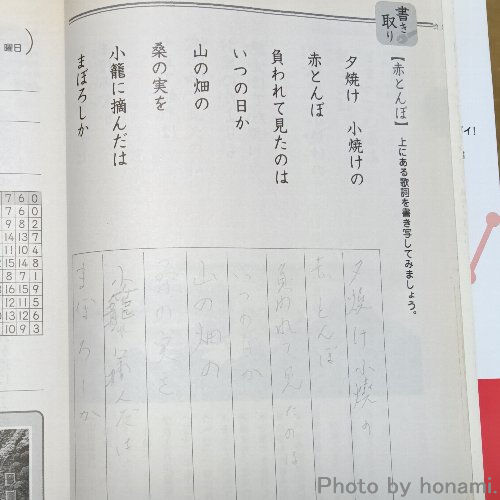 書き取り
【赤とんぼ】 上にある歌詞を書き写してみましょう。
夕焼け 小焼けの
赤とんぼ
負われて見たのは
いつの日か
山の畑の
桑の実を
小籠に摘んだは
まぼろしか
夕焼け小焼の
赤とんぼ
負われて見たのは
いつの日か
山の畑の
桑の実を
小籠に摘んだは
まぼろしか
曜日)
7 6 0
7 6 0
9 8 2
14 13 7
11 10 4
15 14 8
8 7 1
16 15 9
12 11 5
13 12 6
10 9 3
Photo by honami.